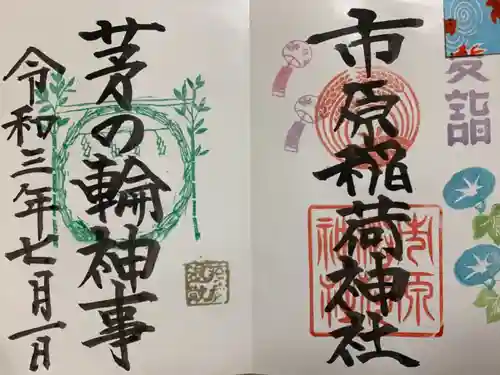 夏詣
市原稲荷神社
市原稲荷神社
茅の輪神事
令和三年七月一日